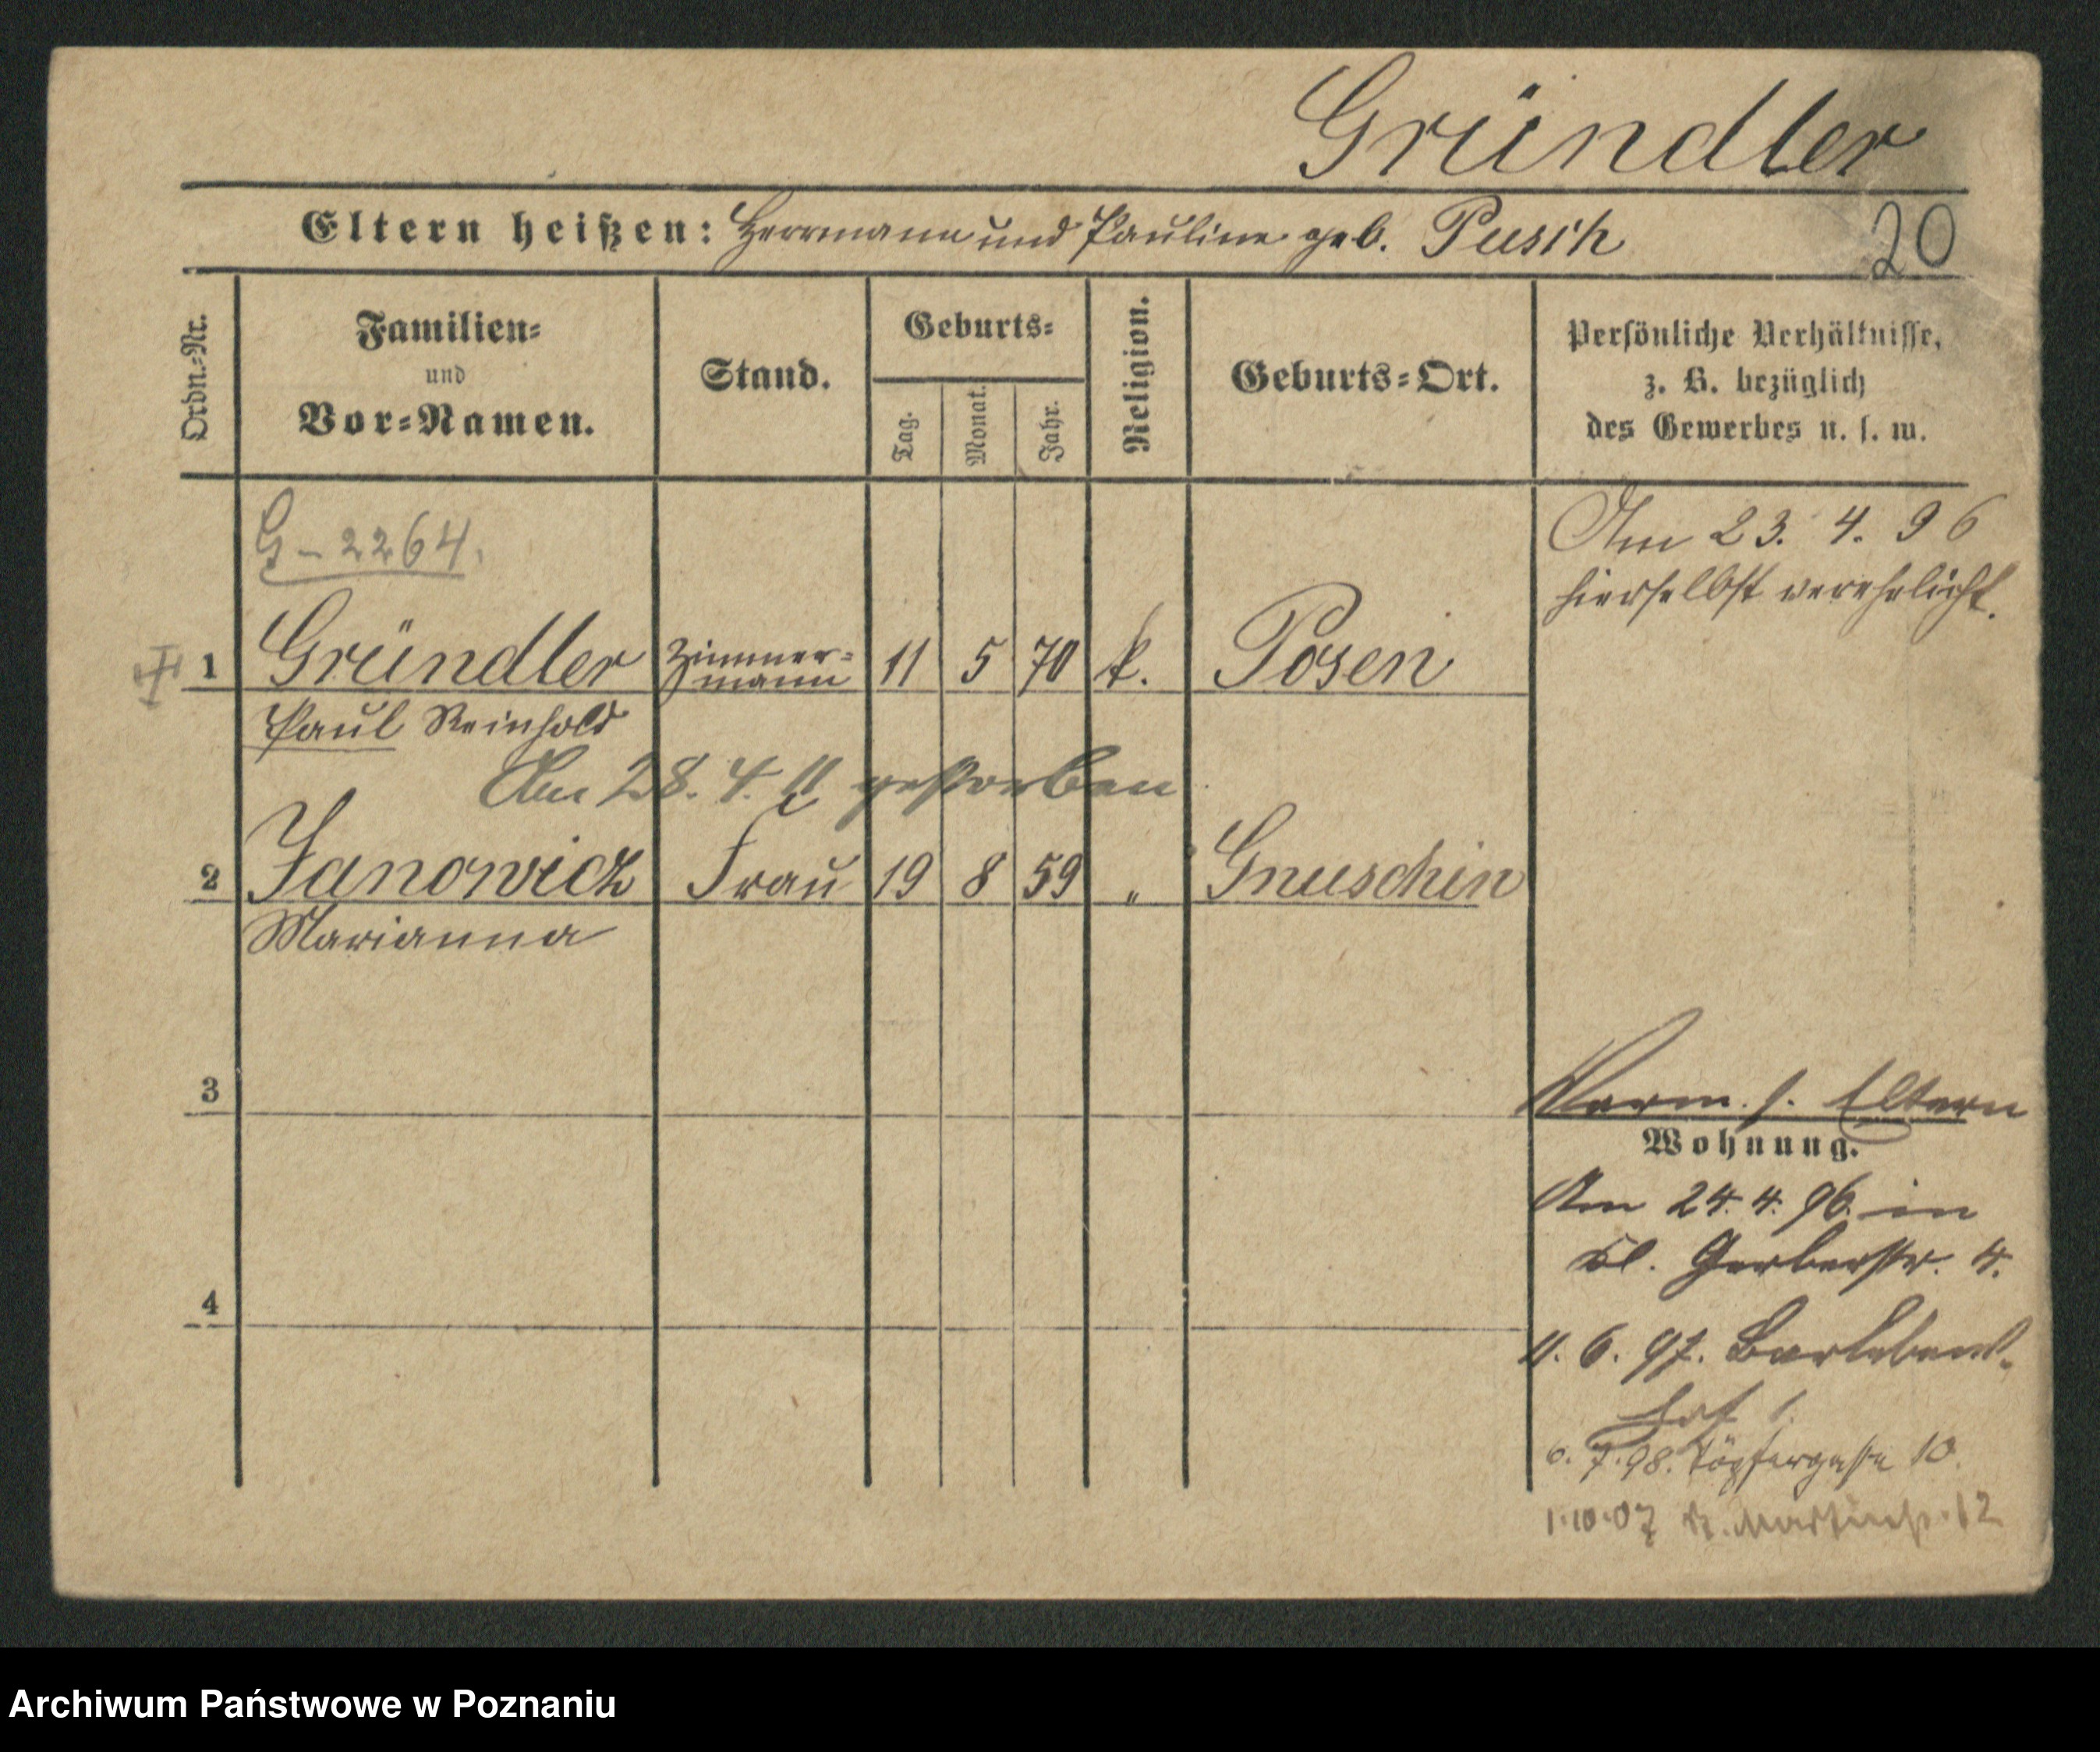 Gründler
Eltern heißen: Herrmann und Pauline geb. Pusch
20
Ordn.-Nr.
Familien-
und
Vor-Namen.
Stand.
Geburts-
Tag.
Monat.
Jahr.
Religion.
Geburts-Ort.
Persönliche Verhältnisse,
z. B. bezüglich
des Gewerbes u. s. w.
G-2264.
Am 23. 4. 96
hierselbst verehelicht.
1 Gründler Zimmer-
mann 11 5 70 k. Posen
Paul Reinhold
Am 28. 4. 11 gestorben
2 Janowicz Frau 19 8 59 " Gnuschin
Marianna
3
Verm. s. Eltern
Wohnung.
Am 24. 4. 96. in
Kl. Gerberstr. 4.
4
11. 6. 97. Barleben-
hof 1.
6. 7. 98. Töpfergasse 10.
1.10.07 St. Martinstr. 12
Archiwum Państwowe w Poznaniu